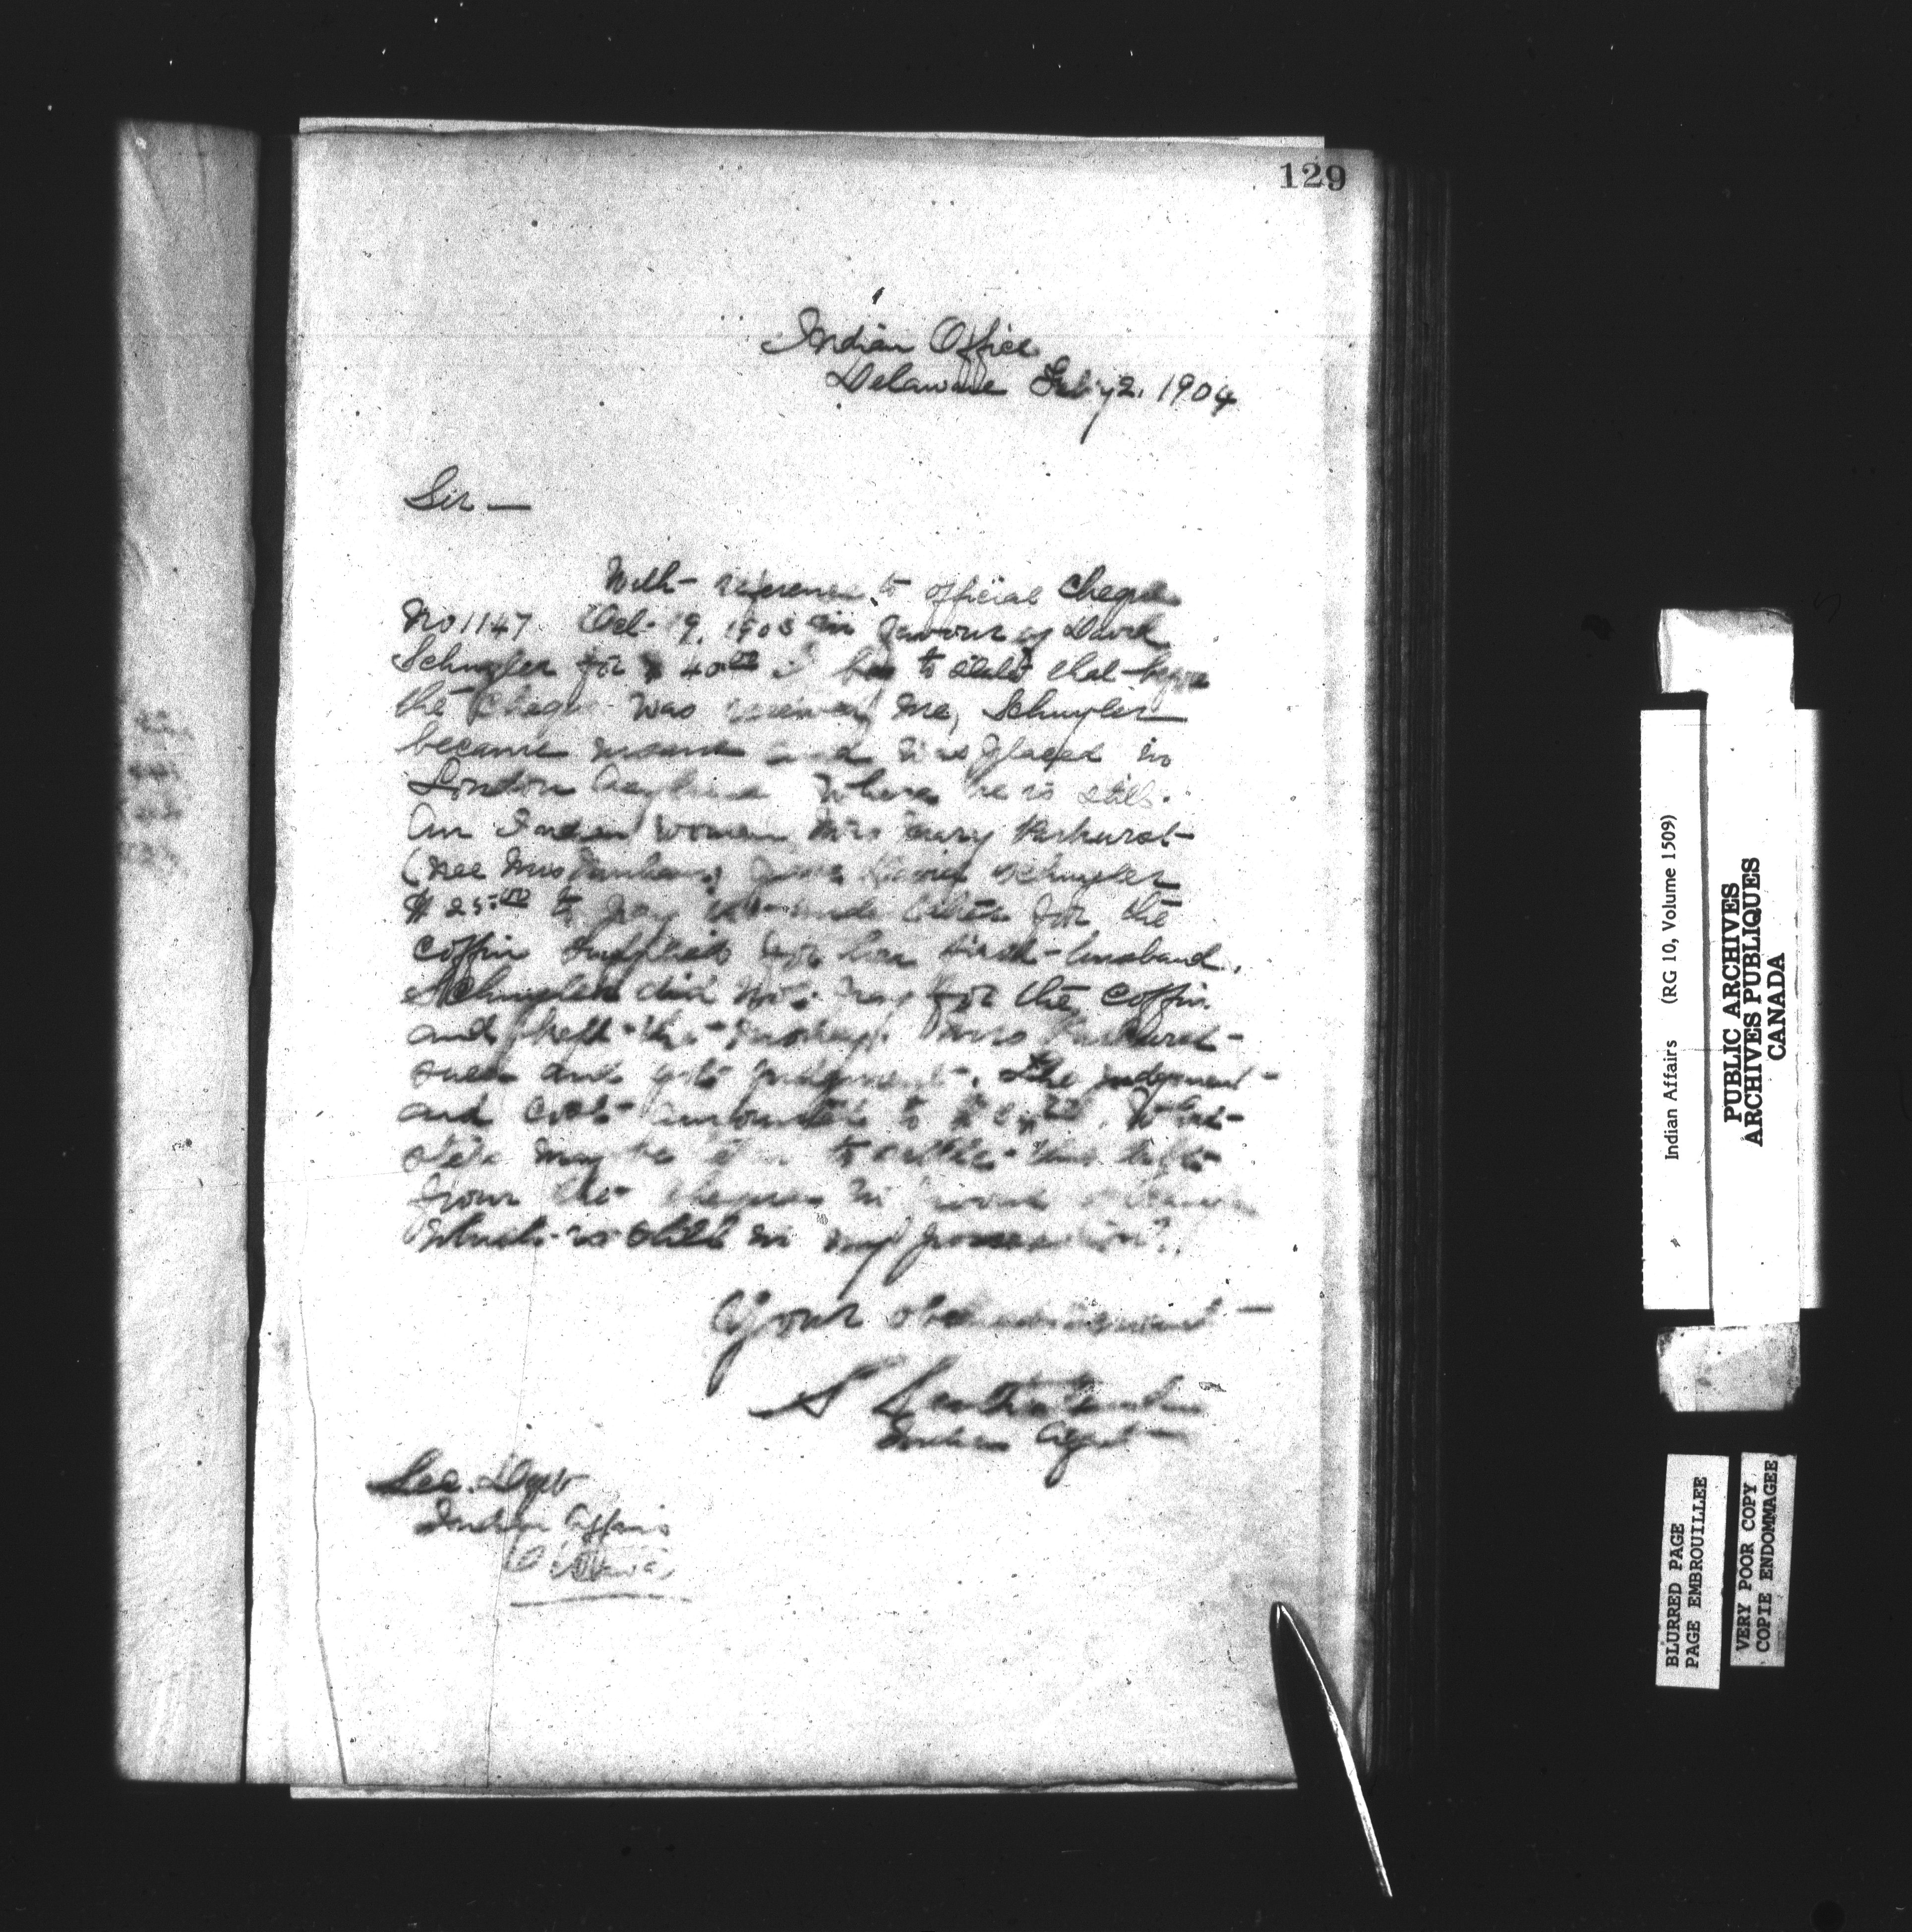 129
Indian Office
Delaware Feby 2. 1904
Sir —
With reference to official Cheque
No 1147 Oct. 19, 1903 in favour of David
Schuyler for $40.00 I beg to state that before
the cheque was received me, Schuyler
became insane and was placed in
London Asylum where he is still.
An Indian women Mrs Mary Parkhurst
(nee Mrs gave David Schuyler
$25.00 to pay for the
coffin supplied for her husband.
Schuyler did not pay for the coffin
and kept the money. Mrs Parkhurst
sued and got judgment. The judgment
and cost amounted to What
steps may be to settle this
from the cheque in
which is still in my possession?
Your obedient servant
S
Indian Agent
Sec. Dept
Indian Affairs
Ottawa
Indian Affairs (RG 10, Volume 1509)
PUBLIC ARCHIVES
ARCHIVES PUBLIQUES
CANADA
BLURRED PAGE
PAGE EMBROUILLEE
VERY POOR COPY
COPIE ENDOMMAGEE